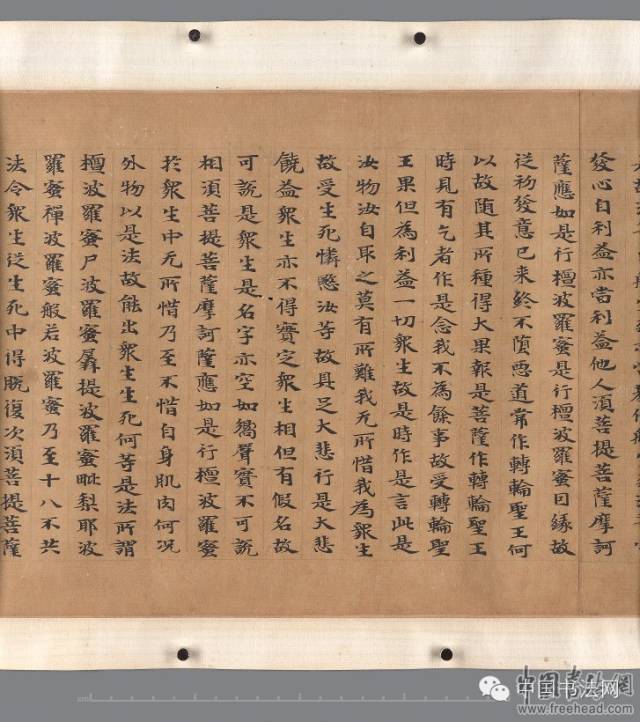 發心自利益亦當利益他人須菩提菩薩摩訶
薩應如是行檀波羅蜜是行檀波羅蜜因緣故
從初發意已來終不墮惡道常作轉輪聖王何
以故隨其所種得大果報是菩薩作轉輪聖王
時見有乞者作是念我不為餘事故受轉輪聖
王果但為利益一切眾生故是時作是言此是
汝物汝自取之莫有所難我无所惜我為眾生
故受生死憐愍汝等故具足大悲行是大悲
饒益眾生亦不得實定眾生相但有假名故
可說是眾生是名字亦空如嚮聲實不可說
相須菩提菩薩摩訶薩應如是行檀波羅蜜
於眾生中无所惜乃至不惜自身肌肉何況
外物以是法故能出眾生生死何等是法所謂
檀波羅蜜尸波羅蜜羼提波羅蜜毗梨耶波
羅蜜禪波羅蜜般若波羅蜜乃至十八不共
法令眾生從生死中得脫復次須菩提菩薩
中国书法网
中国书法网
www.freehead.com